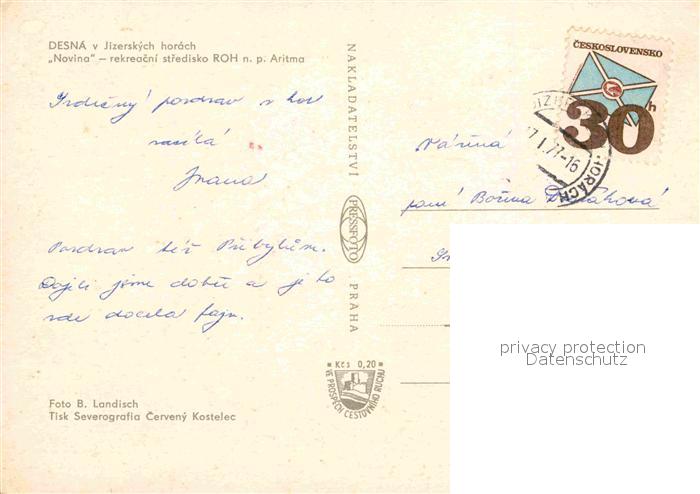 DESNÁ v Jizerských horách
„Novina" – rekreační středisko ROH n. p. Aritma
Srdečný pozdrav z hor
zasílá
Ivana
Pozdrav též Přibylům.
Dojeli jsme dobře a je to
zde docela fajn.
Foto B. Landisch
Tisk Severografia Červený Kostelec
NAKLADATELSTVÍ
PRESSFOTO
PRAHA
Kčs 0,20
VE PROSPĚCH CESTOVNÍHO RUCHU
ČESKOSLOVENSKO
30h
7.I.77-16
HORÁCH
Vážená
paní Božena
privacy protection
Datenschutz